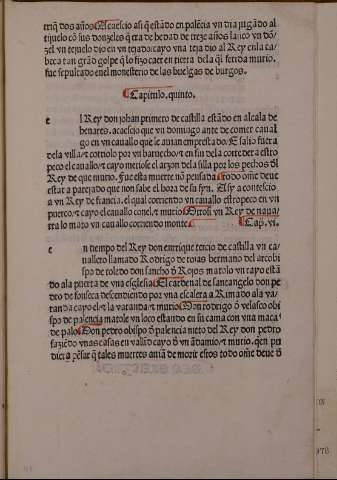 triq̃ dos años Acaescio asi q̃ estãdo en palẽcia vn dia jugãdo al
tejuelo cõ sus donzeles q̃ era de hedad de treze años lanço vn dõ
zel vn tejuelo dio en vn tejado t cayo vna teja dio al Rey en la ca
beça tan grãd golpe q̃ lo fizo caer en tierra dela q̃l ferida murio.
fue sepultado en el monesterio de las huelgas de burgos.
Capitulo. quinto.
e
l Rey don johan primero de castilla estãdo en alcala de
henares. acaescio que vn domingo ante de comer caual
go en vn cauallo que le auian emprestado. E salio fuera
dela villa t corriolo por vn baruecho t en fin dela carrera estro
peço el cauallo. t cayo metiose el arzon dela silla por los pechos del
Rey de que murio. Fue esta muerte nõ pensada todo om̃e deue
estar aparejado que non sabe el hora de su fyn. Asy acontescio
a vn Rey de francia. el qual corriendo vn cauallo estropeço en vn
puerco t cayo el cauallo con el t murio Otrosi vn Rey de naua
rra lo mato vn cauallo corriendo monte.
Cap. vi.
e
n tiempo del Rey don enrrique tercio de castilla vn ca
uallero llamado Rodrigo de rojas hermano del arcobi
spo de toledo don sancho d̃ Rojas matolo vn rayo está
do ala puerta de vna eglesia El cardenal de santangelo don pe
dro de fonseca descendiendo por vna escalera a Rimado ala va
randa cayo el t la varanda t murio Don rodrigo d̃ velasco obi
spo de palencia matole vn loco estando en su cama con vna maça
de palo Don pedro obispo d̃ palencia nieto del Rey don pedro
faziẽdo vnas casas en valld̃ cayo d̃ vn ãdamio t murio. quien pu
diera pẽsar q̃ tales muertes auiã de morir estos todo om̃e deue d̃